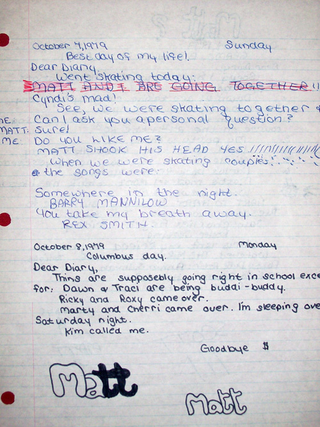 October 7, 1979 Sunday
Best day of my life!
Dear Diary,
Went skating today:
MATT AND I ARE GOING TOGETHER !!
Cyndi's mad!
See, we were skating together &
ME- Can I ask you a personal question?
MATT- Sure!
ME- DO YOU LIKE ME?
MATT SHOOK HIS HEAD YES !!!!!!!!!!!!!!!
When we were skating couples
the songs were:
Somewhere in the night.
BARRY MANNILOW
You take my breath away.
REX SMITH.
October 8, 1979 Monday
Columbus day.
Dear Diary,
Things are supposebly going right in school exce
for: Dawn & Traci are being buddi-buddy.
Ricky and Roxy came over.
Marty and Cherri came over. I'm sleeping ove
Saturday night.
Kim called me.
Goodbye $
Matt
Matt